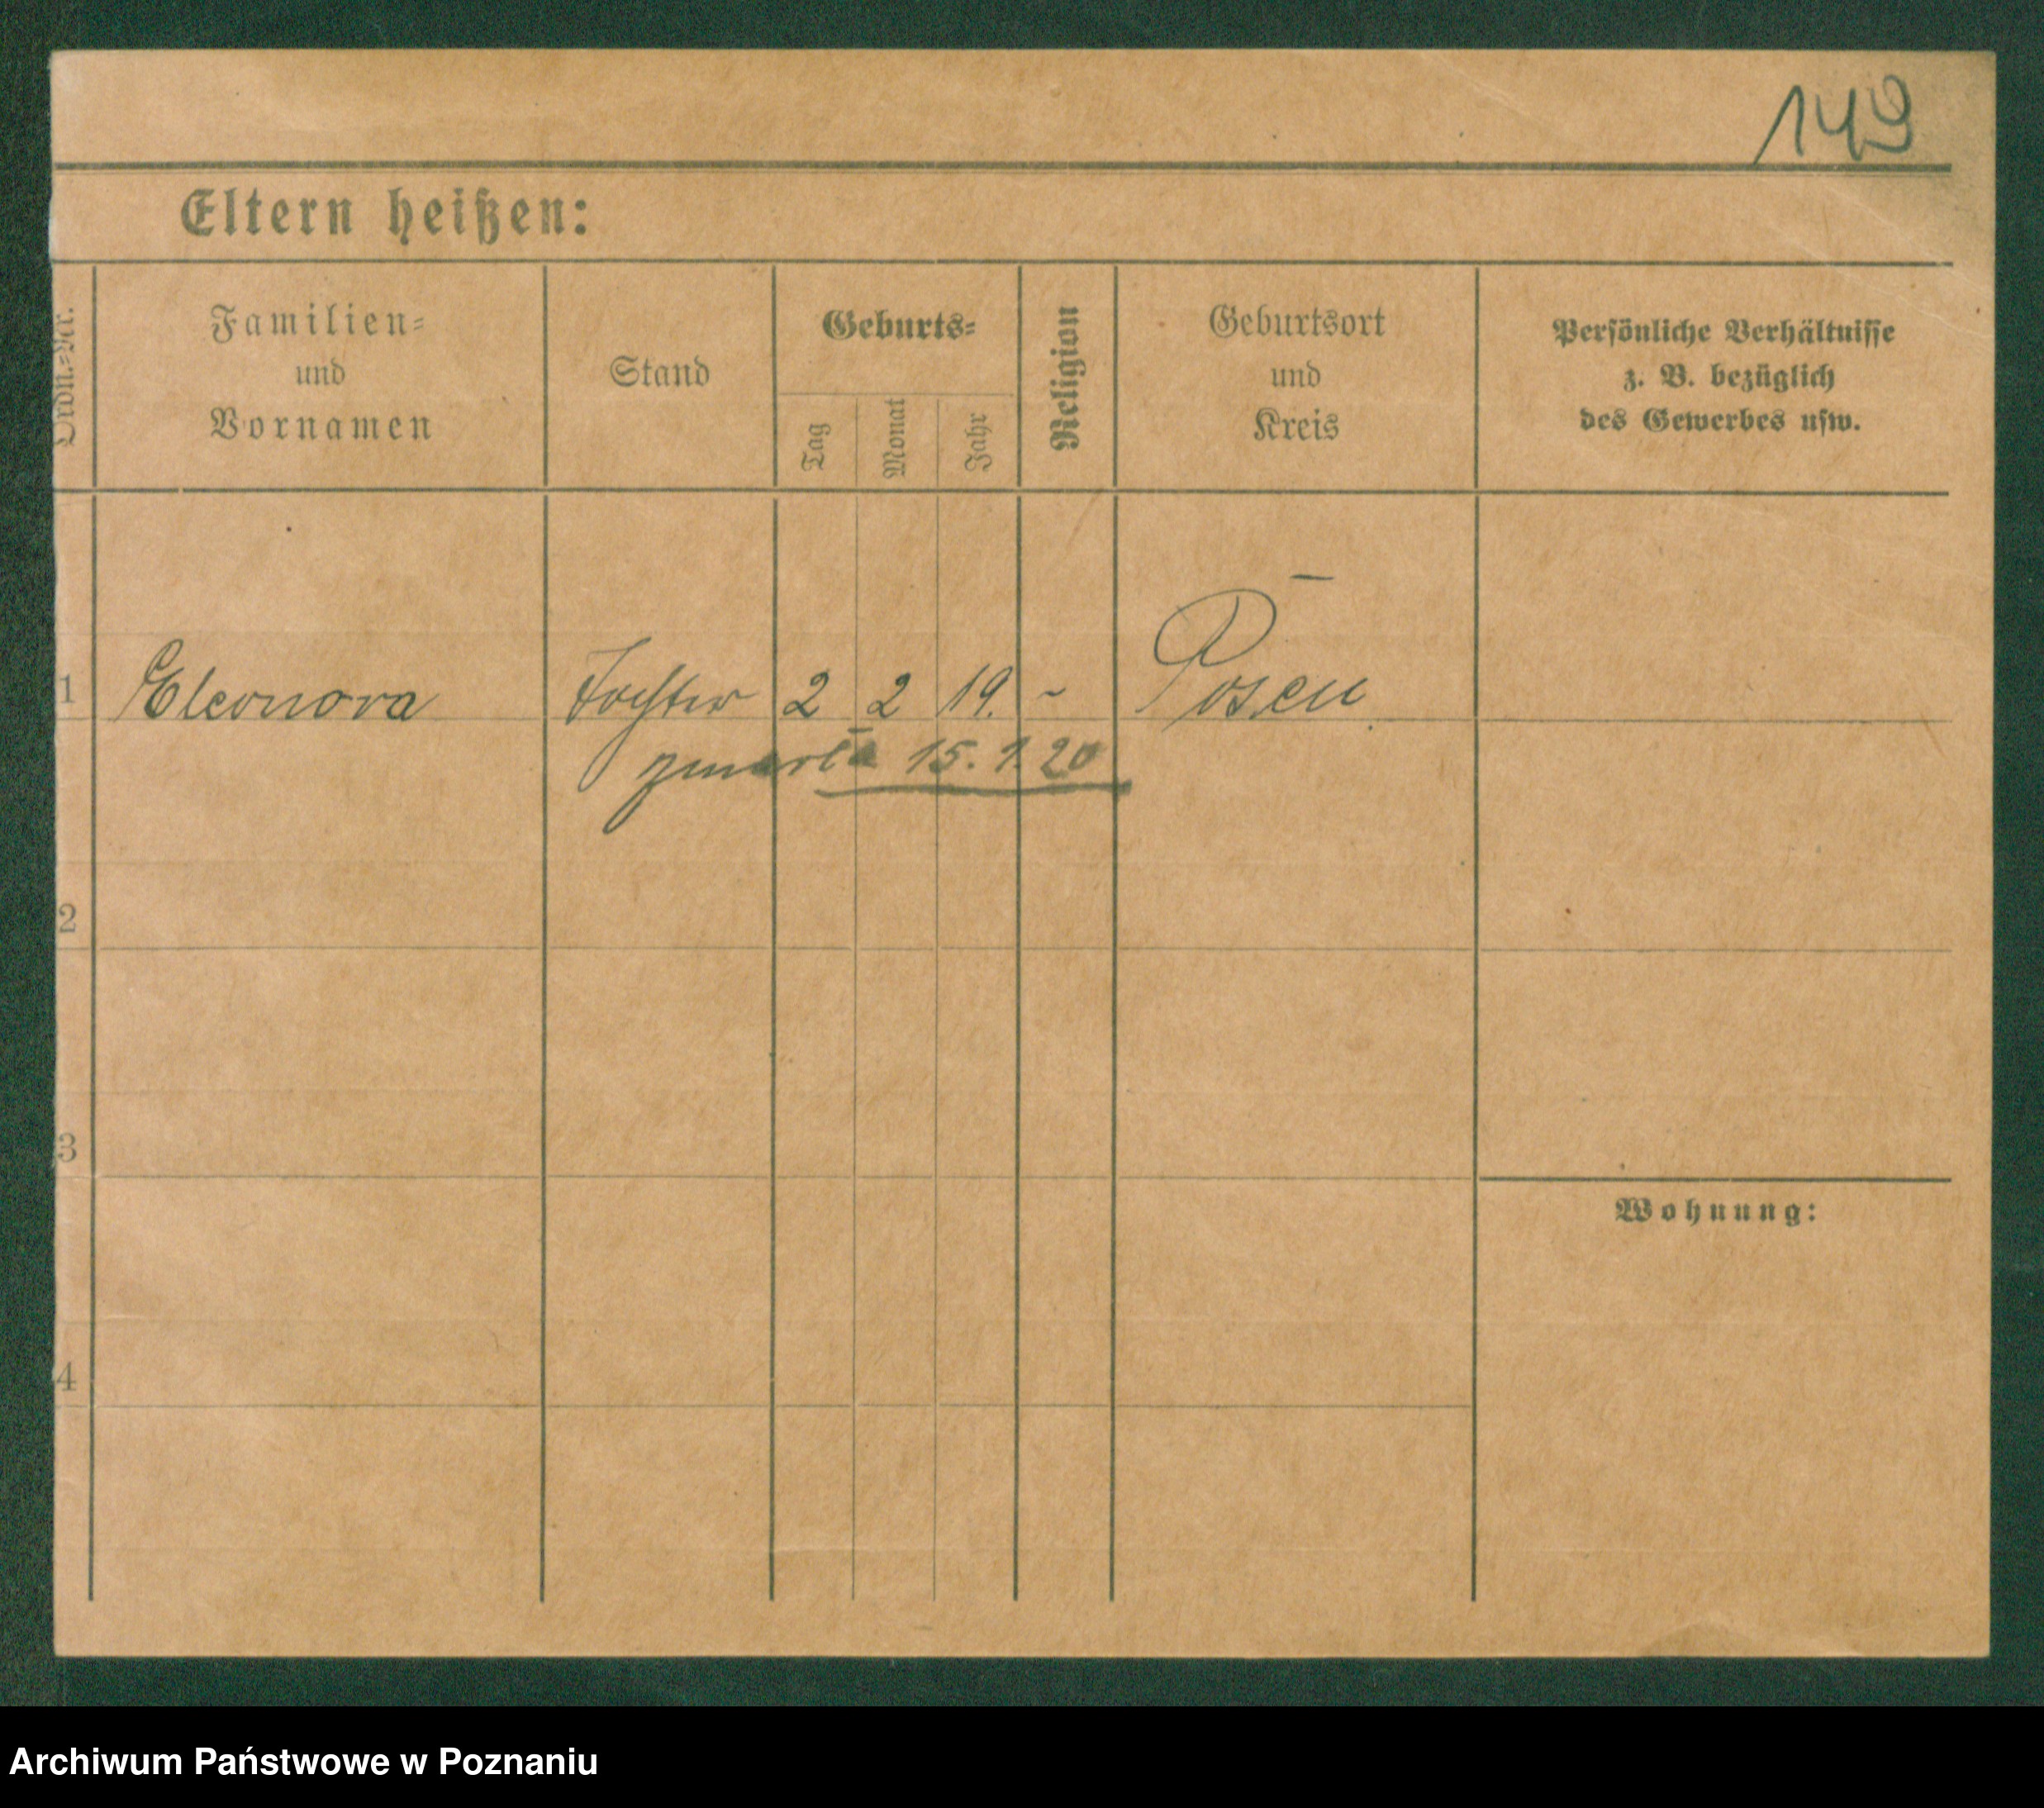 149
Eltern heißen:
Ordn.-Nr.
Familien-
und
Vornamen
Stand
Geburts-
Tag
Monat
Jahr
Religion
Geburtsort
und
Kreis
Persönliche Verhältnisse
z. B. bezüglich
des Gewerbes usw.
1 Eleonora Tochter 2 2 19. ~ Posen
zmarła 15.1.20
2
3
Wohnung:
4
Archiwum Państwowe w Poznaniu